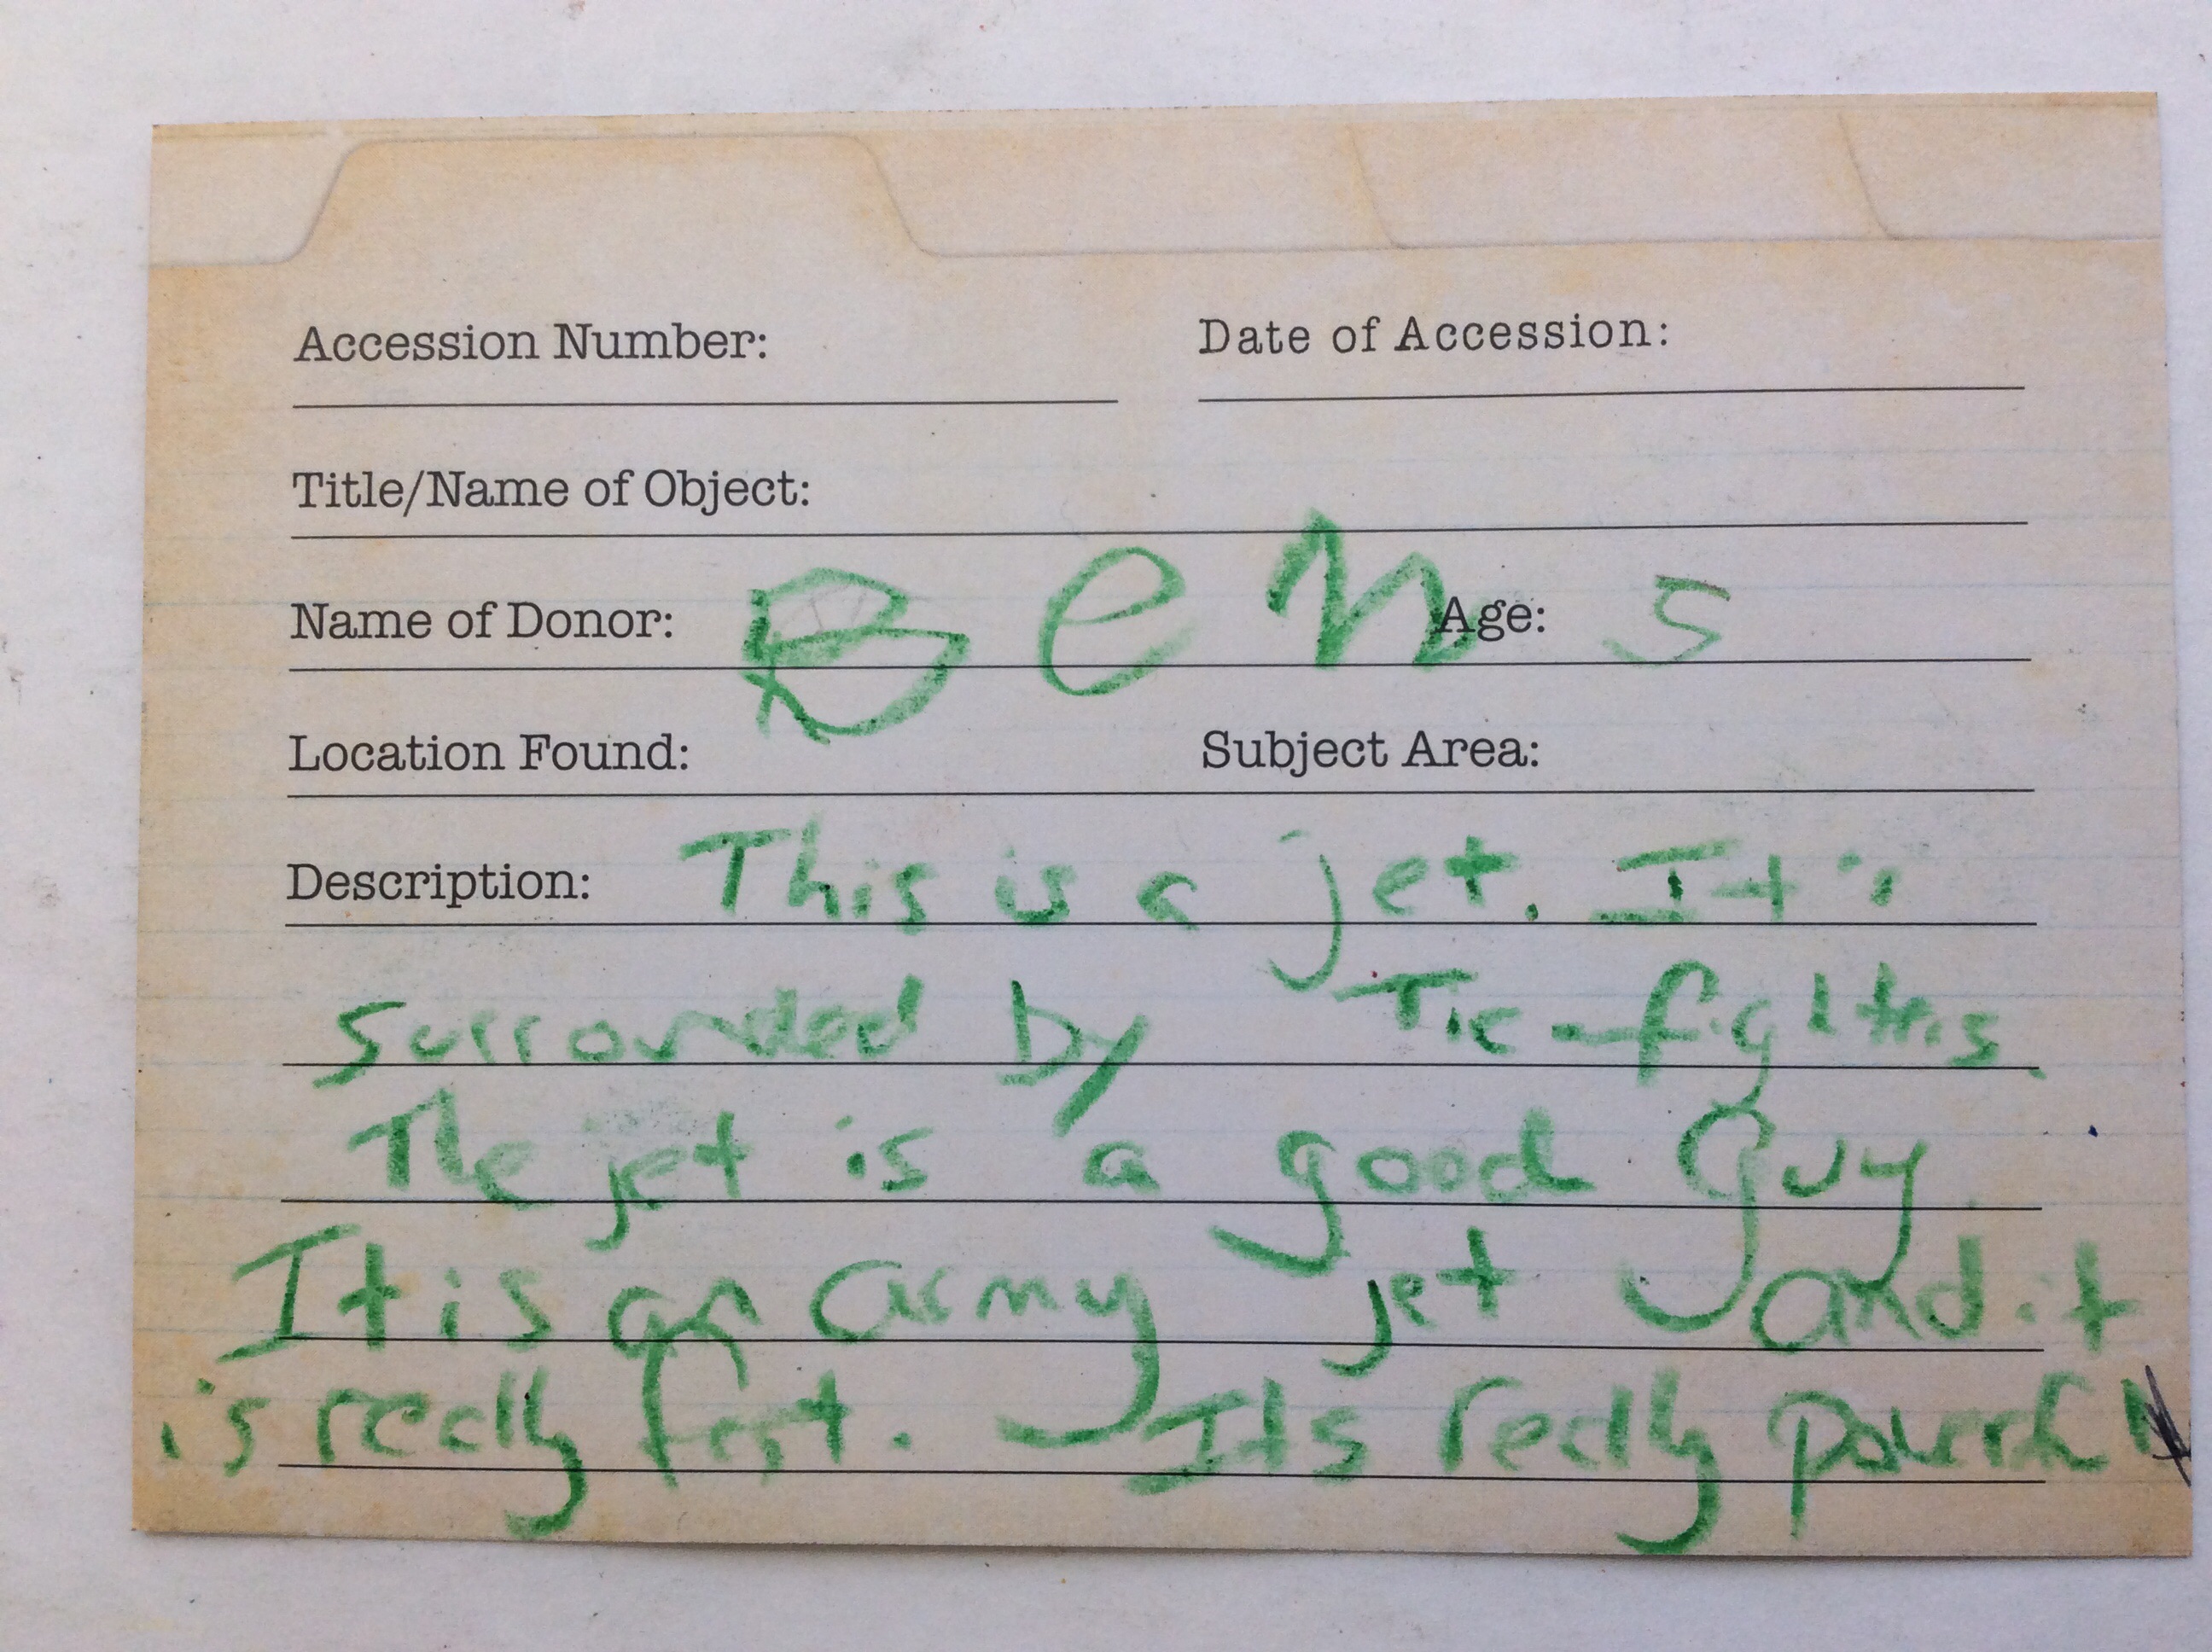 Accession Number: Date of Accession:
Title/Name of Object:
Name of Donor: Ben Age: 5
Location Found: Subject Area:
Description: This is a jet. It is
surrounded by Tie-fighters.
The jet is a good guy.
It is an army jet and it
is really fast. Its really